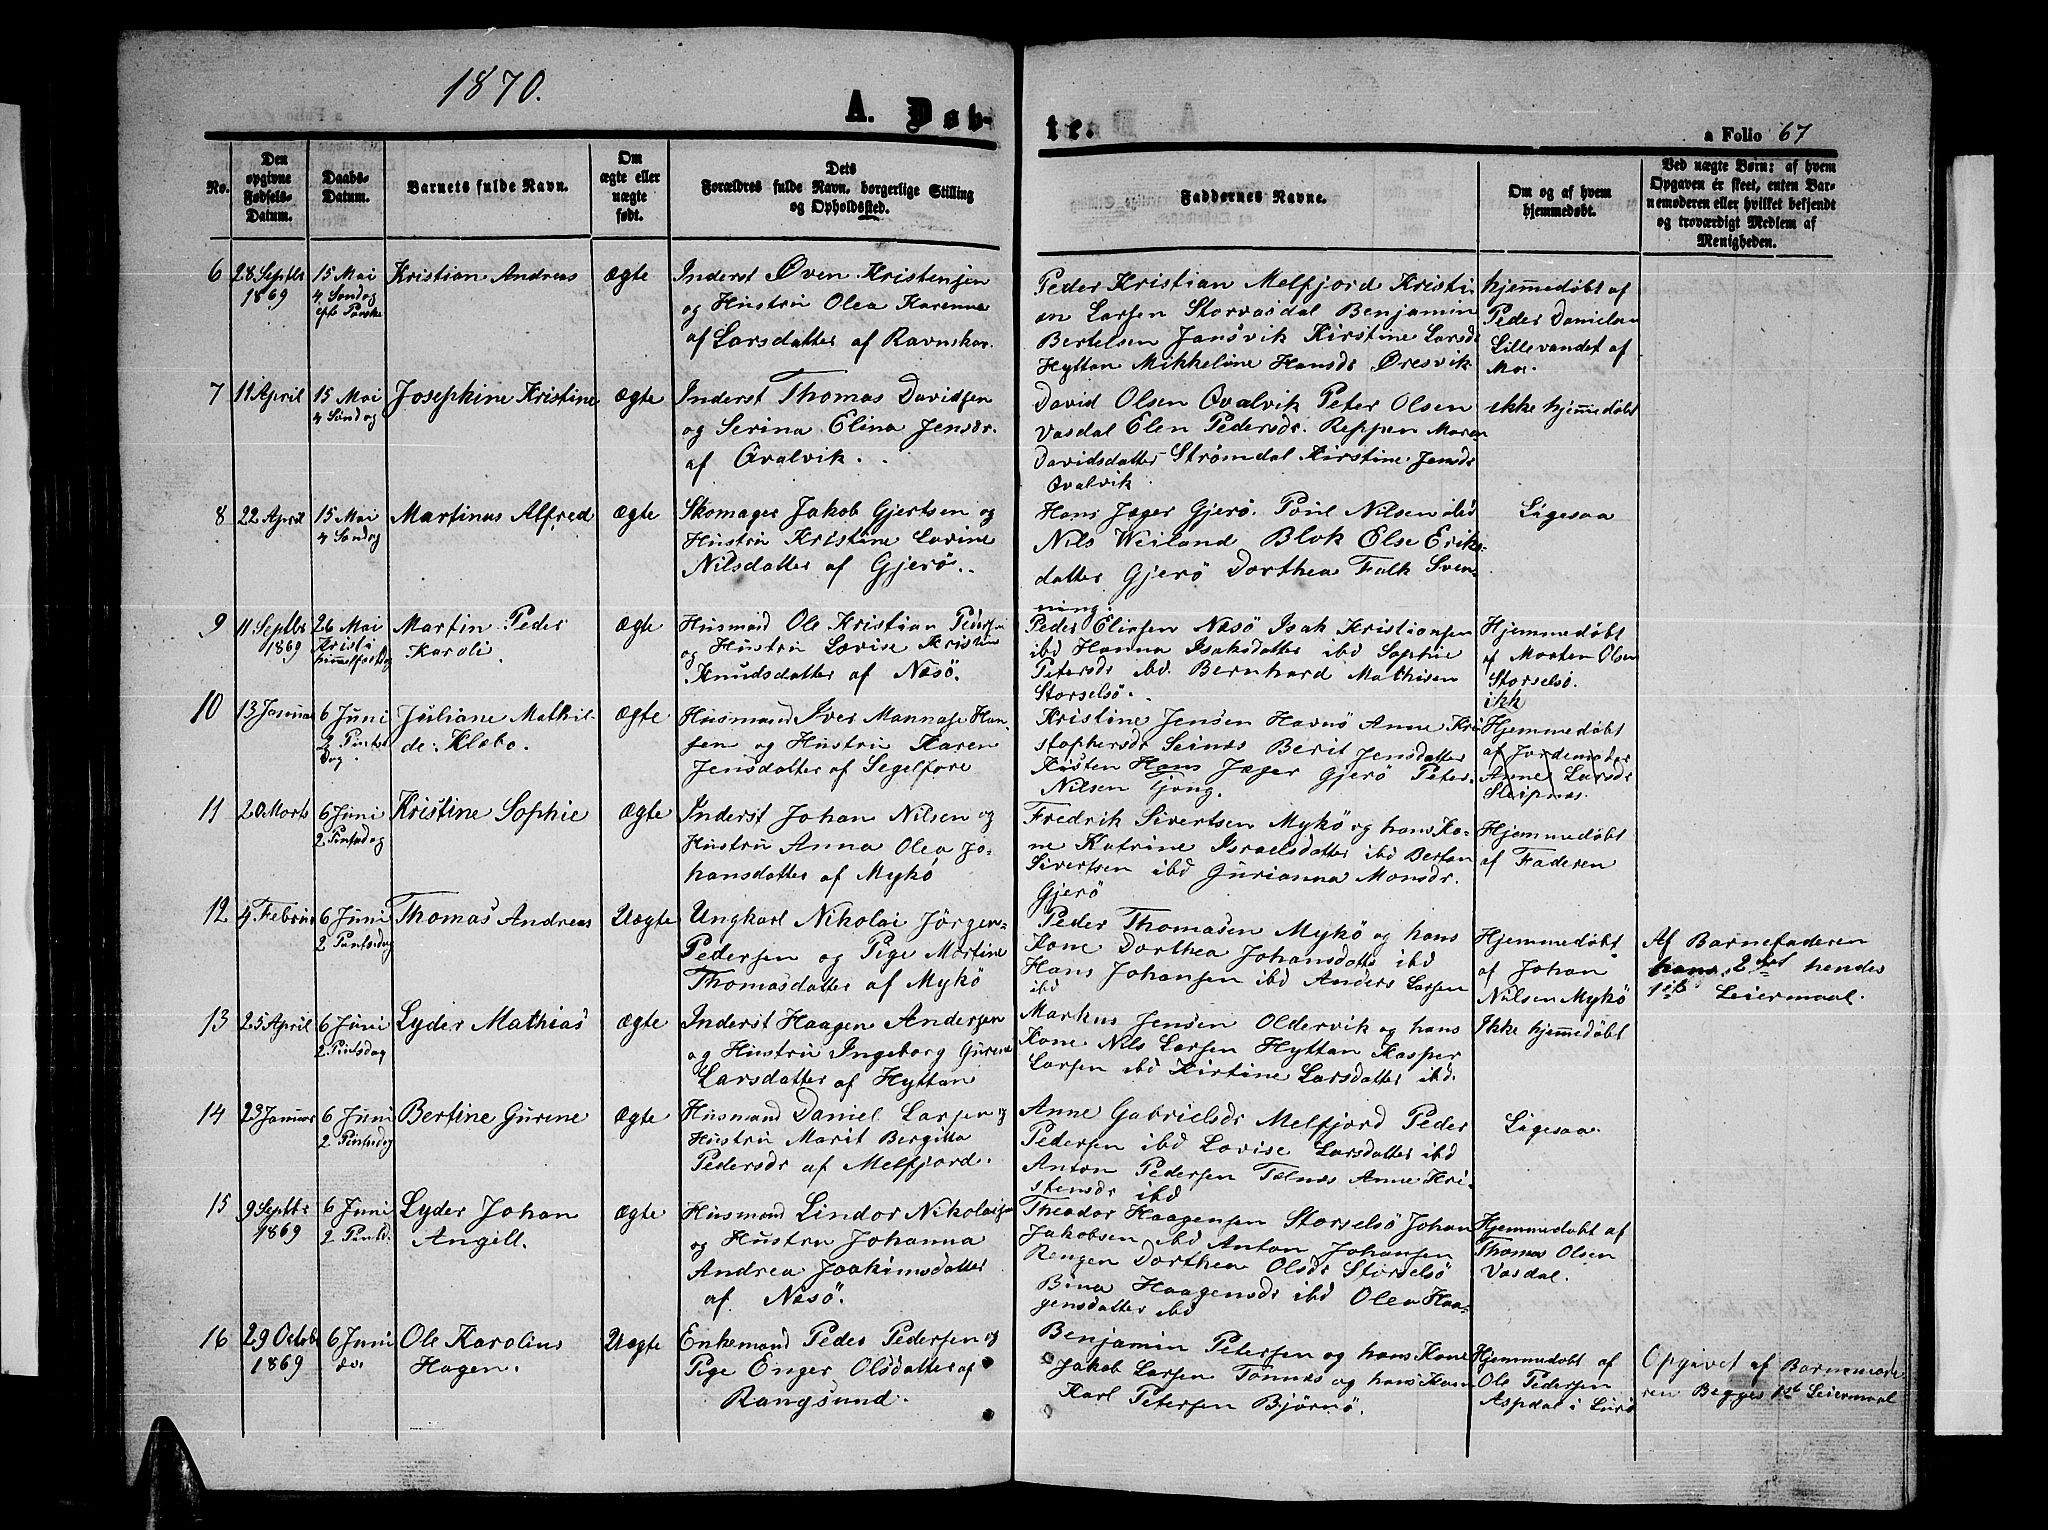 1870.
A. Døb-
te.
a Folio 67
No.
Den
opgivne
Fødsels-
Datum.
Daabs-
Datum.
Barnets fulde Navn.
Om
ægte eller
uægte
født.
Dets
Forældres fulde Navn, borgerlige Stilling
og Opholdssted.
Faddernes Navne.
Om og af hvem
hjemmedøbt.
Ved uægte Børn: af hvem
Opgaven er skeet, enten Bar-
nemoderen eller hvilket bekjendt
og troværdigt Medlem af
Menigheden.
6
28 Septbr
1869
15 Mai
4 Søndag
eft Paaske
Kristian Andreas
Ægte
Inderst Øven Kristensen
og Hustru Olea Karenna
af Larsdatter af Ravnskar.
Peder Kristian Melfjord Kristi-
an Larsen Storvasdal Benjamin
Bertelsen Jansvik Kirstine Larsdr
Hyttan Mikkeline Hansdr Øresvik
hjemmedøbt af
Peder Danielsen
Lillevandet af
Mo.
7
11 April
15 Mai
4 Søndag
Josephine Kristine
Ægte
Inderst Thomas Davidsen
og Serina Elina Jensdr.
af Qvalvik.
David Olsen Qvalvik Peter Olsen
Vasdal Elen Pedersdr. Reppen Maren
Davidsdatter Strømdal Kirstine Jensdr
Qvalvik.
ikke hjemmedøbt
8
22 April
15 Mai
4 Søndag
Martinus Alfred
Ægte
Skomager Jakob Gjertsen og
Hustru Kristine Lovine
Nilsdatter af Gjerø.
Hans Jæger Gjerø. Poul Nilsen ibd
Nils Weiland Blok Else Eriks-
datter Gjerø Dorthea Falk Sven-
ning.
Ligesaa
9
11 Septbr
1869
26 Mai
Kristi
himmelfartsdag
Martin Peder
Karoli
Ægte
Husmand Ole Kristian Pedersen
og Hustru Lovise Kristin
Knudsdatter af Næsø.
Peder Eliasen Næsø Isak Kristiansen
ibd Hanna Isaksdatter ibd Sophie
Petersdr ibd. Bernhard Mathisen
Storselsø.
Hjemmedøbt
af Morten Olsen
Storselsø.
10
13 Januar
6 Juni
2 Pintse
Dag.
Juliane Mathil-
de Klæbo.
Ægte
Husmand Iver Mannase Han-
sen og Hustru Karen
Jensdatter af Segelfore
Kristine Jensen Havnø Anne Kri-
stophersdr Seines Berit Jensdatter
Kristen Hans Jæger Gjerø Peter
Nilsen Tjong.
ikk
Hjemmedøbt
af Jordemoder
Anne Larsdr
Sleipnes.
11
20 Marts
6 Juni
2 Pintsdag
Kristine Sophie
Ægte
Inderst Johan Nilsen og
Hustru Anna Olea Jo-
hansdatter af Mykø
Fredrik Sivertsen Mykø og hans Ko-
ne Katrine Israelsdatter ibd Bertan
Sivertsen ibd Gurianna Monsdr.
Gjerø
Hjemmedøbt
af Faderen
12
4 Februar
6 Juni
2 Pintsdag
Thomas Andreas
Uægte
Ungkarl Nikolai Jørgen
Pedersen og Pige Martine
Thomasdatter af Mykø
Peder Thomasen Mykø og hans
Kone Dorthea Johansdatter ibd
Hans Johansen ibd Anders Larsen
ibd
Hjemmedøbt
af Johan
Nilsen Mykø
Af Barnefaderen
hans 2det hendes
1ste Leiermaal.
13
25 April
6 Juni
2 Pintsdag
Lyder Mathias
Ægte
Inderst Haagen Andersen
og Hustru Ingeborg Gurine
Larsdatter af Hyttan
Markus Jensen Oldervik og hans
Kone Nils Larsen Hyttan Kasper
Larsen ibd Kirtine Larsdatter ibd.
Ikke hjemmedøbt
14
23 Januar
6 Juni
2 Pintsdag
Bertine Gurine
Ægte
Husmand Daniel Larsen og
Hustru Marit Bergitta
Pedersdr af Melfjord.
Anne Gabrielsdr Melfjord Peder
Pedersen ibd Lovise Larsdatter ibd
Anton Pedersen Telnes Anne Kri-
stensdr ibd
Ligesaa.
15
9 Septbr
1869
6 Juni
2 Pintsd.
Lyder Johan
Angell.
Ægte
Husmand Lindor Nikolaisen
og Hustru Johanna
Andrea Joakimsdatter
af Næsø.
Theodor Haagensen Storselsø Johan
Jakobsen ibd Anton Johansen
Rengen Dorthea Olsdr Storselsø
Bina Haagensdr ibd Olea Haa-
gensdatter ibd
Hjemmedøbt af
Thomas Olsen
Vasdal.
16
29 Octobr
1869
6 Juni
do.
Ole Karolius
Hagen.
Uægte
Enkemand Peder Pedersen og
Pige Enger Olsdatter af
Rangsund.
Benjamin Petersen og hans Kone
Jakob Larsen Tonnes og hans Kone
Karl Petersen Bjørnø.
Hjemmedøbt af
Ole Pedersen
Aspdal i Lurø
Opgivet af Barnemode
ren Begges 1st Leiermaal